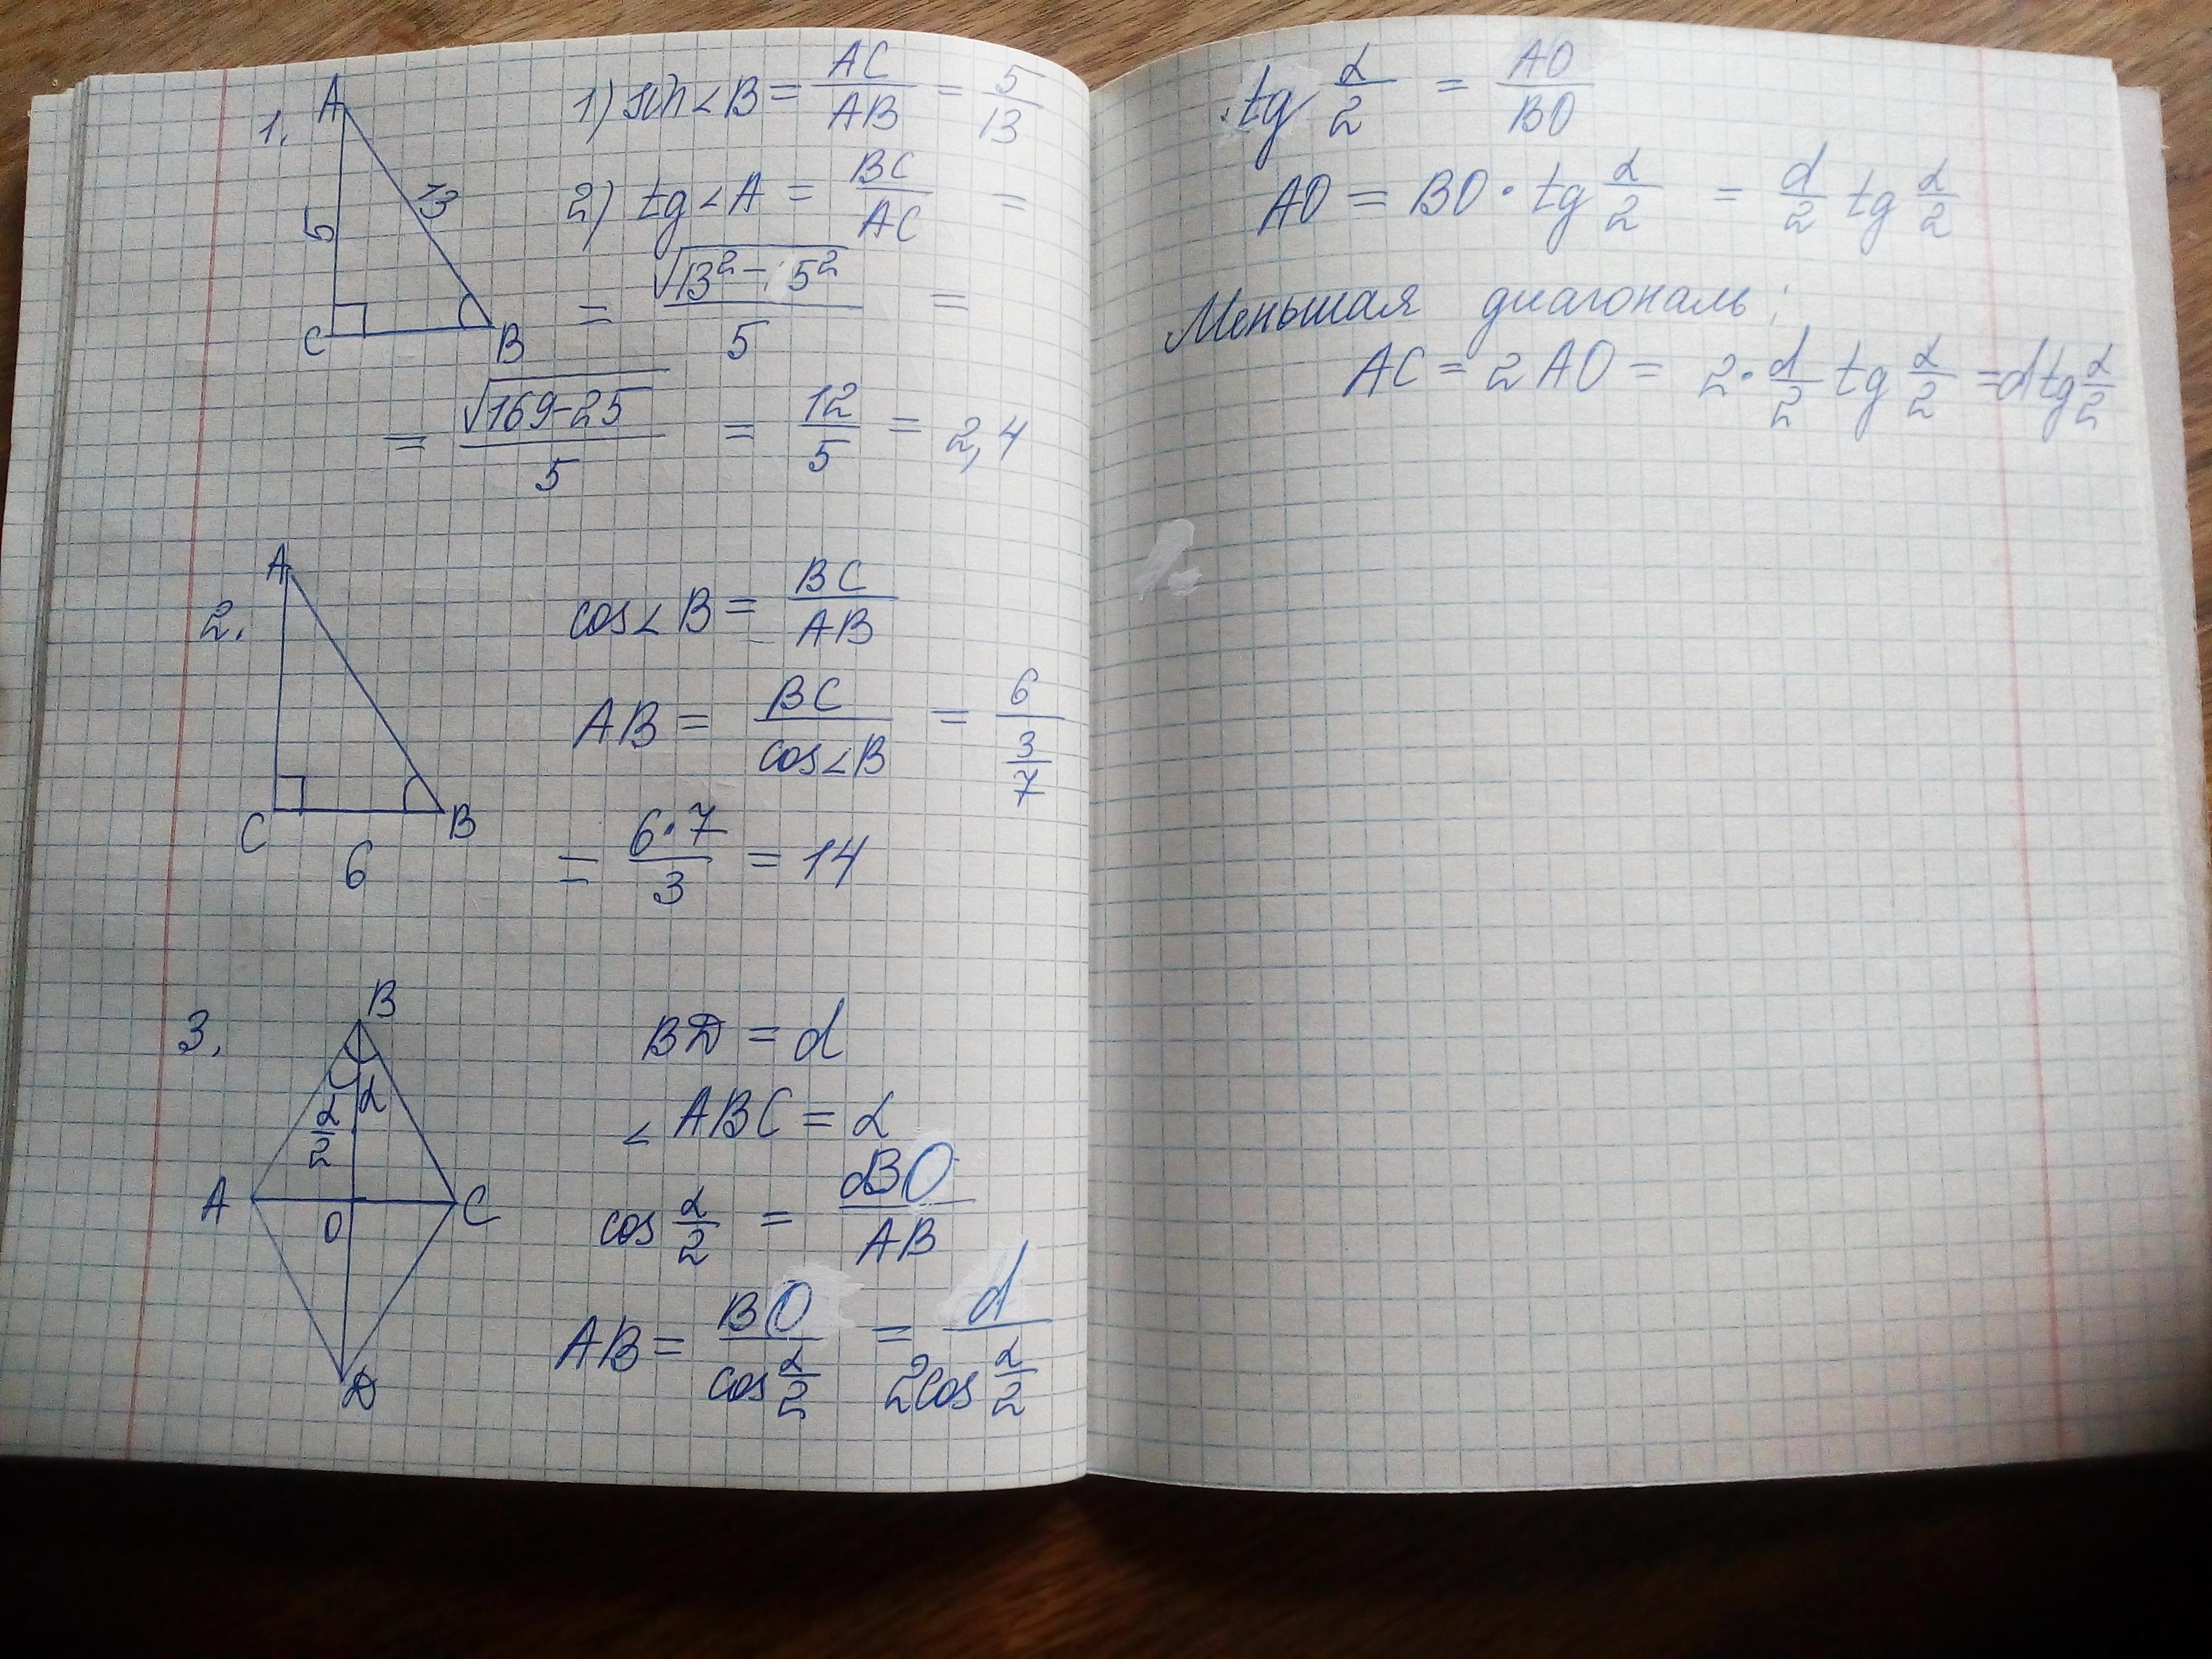 1. A 1) sin∠B = AC/AB = 5/13
13 2) tg∠A = BC/AC =
5
C B = √(13² - 5²)/5 =
= √(169-25)/5 = 12/5 = 2,4
2. A cos∠B = BC/AB
AB = BC/cos∠B = 6/(3/7)
C B
6 = 6·7/3 = 14
3. B BD = d
α/2 α ∠ABC = α
A O C cos α/2 = dBO/AB
D AB = BO/cos α/2 = d/2cos α/2
tg α/2 = AO/BO
AO = BO · tg α/2 = d/2 tg α/2
Меньшая диагональ:
AC = 2AO = 2 · d/2 tg α/2 = d tg α/2